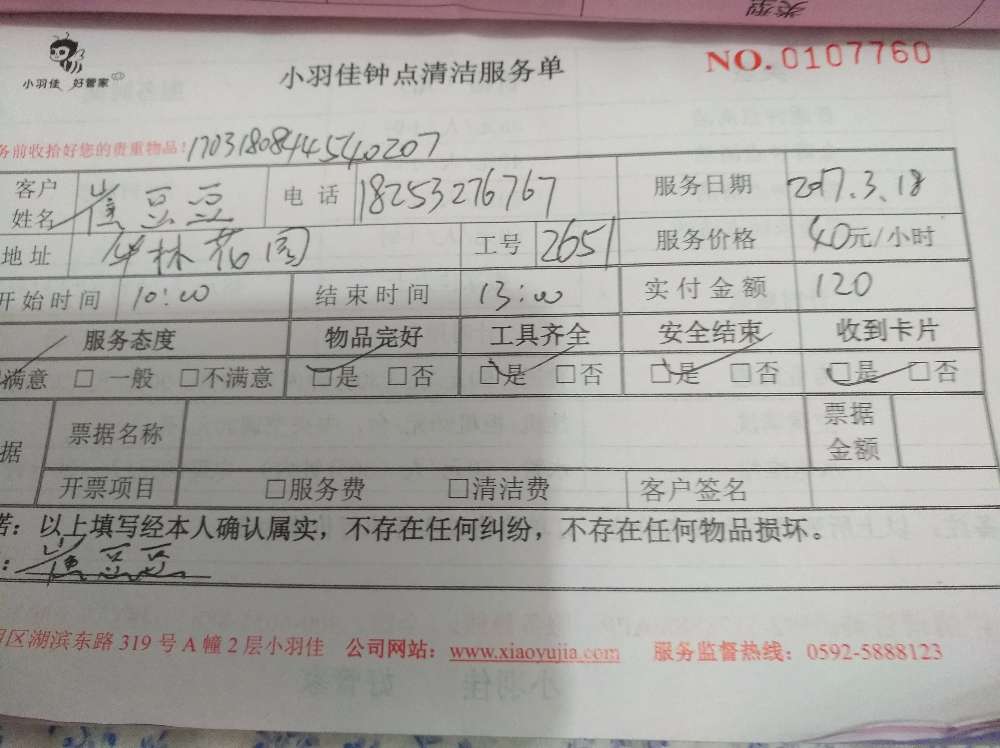 类型
小羽佳 好管家
小羽佳钟点清洁服务单
NO.0107760
务前收拾好您的贵重物品!170318084454 0207
客户姓名 崔豆豆 电话 18253276767 服务日期 2017.3.18
地址 华林花园 工号 2651 服务价格 40元/小时
开始时间 10:00 结束时间 13:00 实付金额 120
服务态度 物品完好 工具齐全 安全结束 收到卡片
满意 □ 一般 □不满意 □是 □否 □是 □否 □是 □否 □是 □否
据 票据名称 票据金额
开票项目 □服务费 □清洁费 客户签名
诺:以上填写经本人确认属实,不存在任何纠纷,不存在任何物品损坏。
:崔豆豆
区湖滨东路 319 号 A 幢 2 层小羽佳 公司网站:www.xiaoyujia.com 服务监督热线:0592-5888123